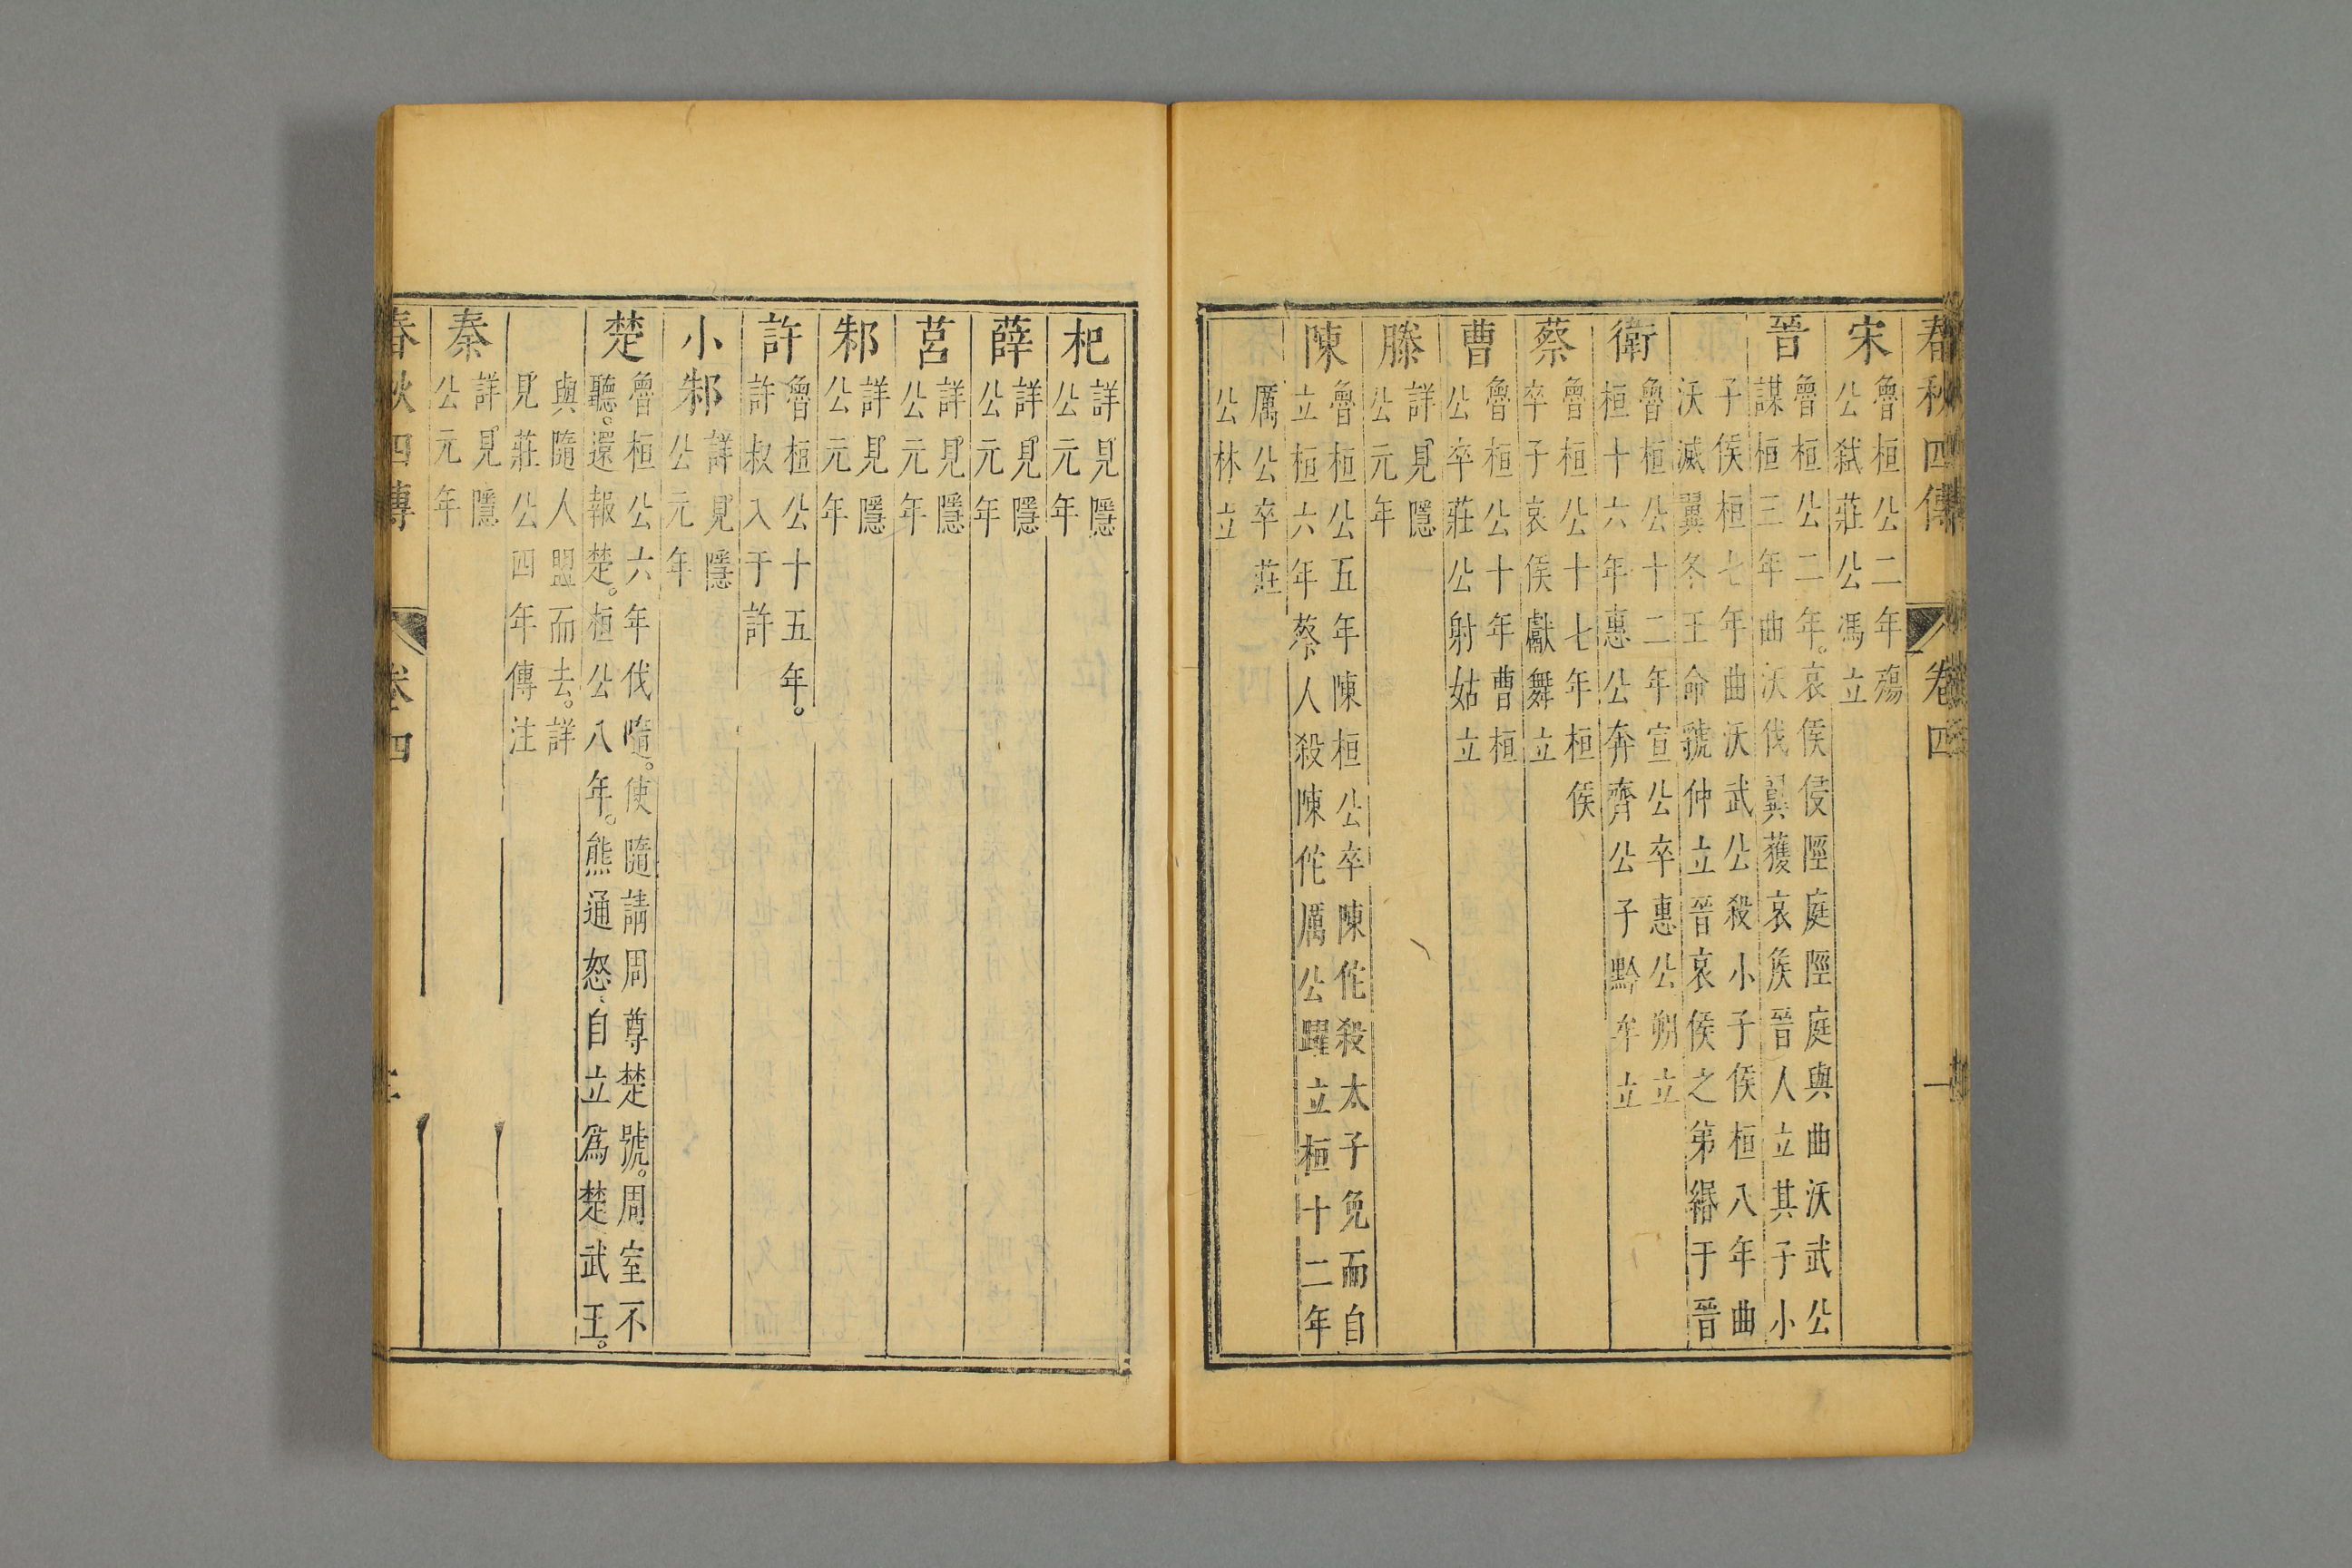 春秋四傳 卷四 一
宋
魯桓公二年殤
公弑莊公馮立
晉
魯桓公二年。哀侯侵陘庭陘庭與曲沃武公
謀桓三年曲沃伐翼獲哀侯晉人立其子小
子侯桓七年曲沃武公殺小子侯桓八年曲
沃滅翼冬王命虢仲立晉哀侯之第緡于晉
衛
魯桓公十二年宣公卒惠公朔立
桓十六年惠公奔齊公子黔牟立
蔡
魯桓公十七年桓侯
卒子哀侯獻舞立
曹
魯桓公十年曹桓
公卒莊公射姑立
滕
詳見隱
公元年
陳
魯桓公五年陳桓公卒陳佗殺太子免而自
立桓六年蔡人殺陳佗厲公躍立桓十二年
厲公卒莊
公林立
杞
詳見隱
公元年
薛
詳見隱
公元年
莒
詳見隱
公元年
邾
詳見隱
公元年
許
魯桓公十五年。
許叔入于許
小邾
詳見隱
公元年
楚
魯桓公六年伐隨。使隨請周尊楚號。周室不
聽。還報楚。桓公八年。熊通怒、自立爲楚武王。
與隨人盟而去。詳
見莊公四年傳注
秦
詳見隱
公元年
春秋四傳 卷四